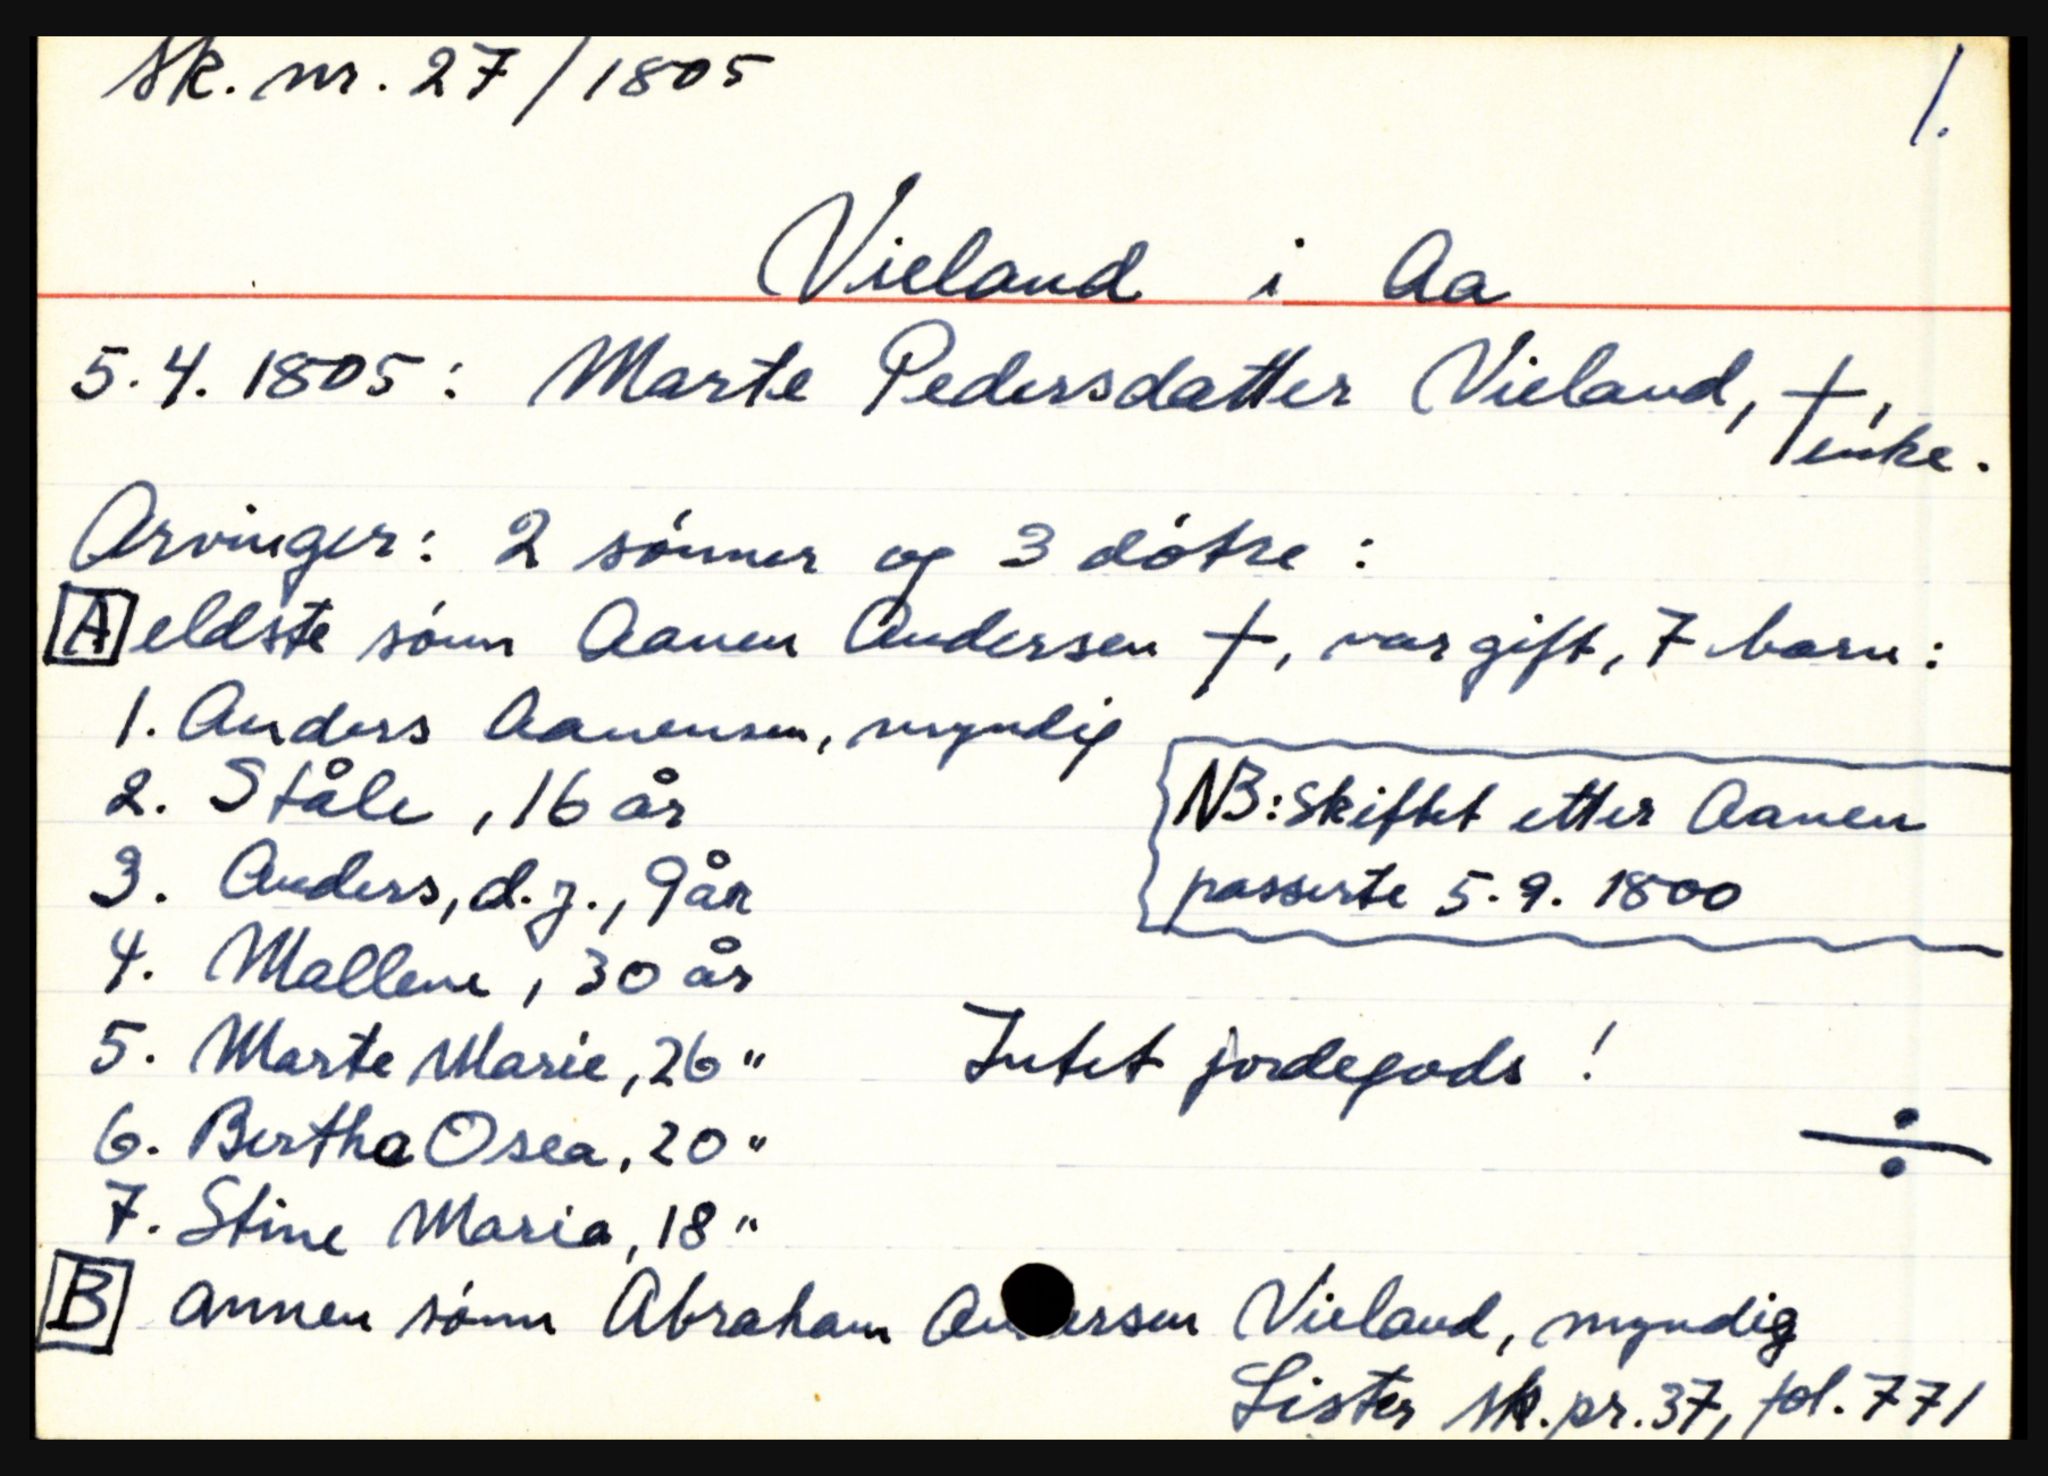 Sk. nr. 27/1805
1.
Vieland i Aa
5.4. 1805: Marte Pedersdatter Vieland, †,
enke.
Arvinger: 2 sónner og 3 dótre:
A eldste sónn Aanen Andersen †, var gift, 7 barn:
1. Anders Aanensen, myndig
2. Ståle, 16 år
NB: Skiftet etter Aanen
3. Anders, d.y., 9 år
passerte 5.9. 1800
4. Mallene, 30 år
5. Marte Marie, 26 "
Intet jordegods!
6. Bertha Osea, 20 "
÷
7. Stine Maria, 18 "
B annen sónn Abraham Andersen Vieland, myndig
Lister sk.pr. 37, fol. 771